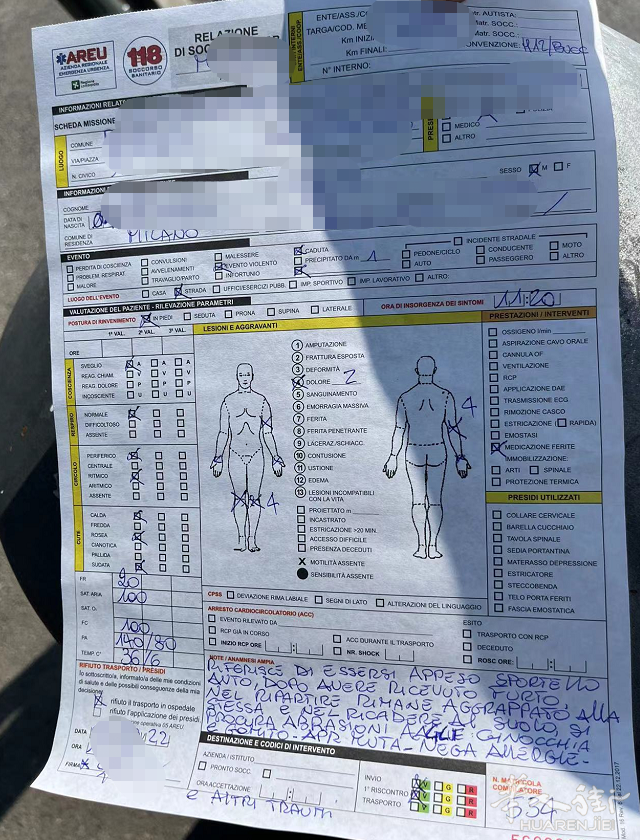 AREU
AZIENDA REGIONALE
EMERGENZA URGENZA
118
SOCCORSO
SANITARIO
RELAZIONE
DI SOC
ENTE/ASS./COOP
ENTE/ASS./C
TARGA/COD. ME
Km INIZI
Km FINALI
N° INTERNO:
tr. AUTISTA:
Matr. SOCC.:
Matr. SOCC.:
CONVENZIONE:
INFORMAZIONI RELAT
SCHEDA MISSIONE
LUOGO
COMUNE
VIA/PIAZZA
N. CIVICO
PRESI
MEDICO
ALTRO
INFORMAZIONI
SESSO M F
COGNOME
DATA DI
NASCITA
COMUNE DI
RESIDENZA MILANO
EVENTO
PERDITA DI COSCIENZA
PROBLEM. RESPIRAT.
MALORE
CONVULSIONI
AVVELENAMENTI
TRAVAGLIO/PARTO
MALESSERE
EVENTO VIOLENTO
INFORTUNIO
CADUTA
PRECIPITATO DA m 1
INCIDENTE STRADALE
PEDONE/CICLO
AUTO
CONDUCENTE
PASSEGGERO
MOTO
ALTRO
LUOGO DELL'EVENTO CASA STRADA UFFICI/ESERCIZI PUBB. IMP. SPORTIVO IMP. LAVORATIVO ALTRO:
VALUTAZIONE DEL PAZIENTE - RILEVAZIONE PARAMETRI
ORA DI INSORGENZA DEI SINTOMI 11:20
POSTURA DI RINVENIMENTO IN PIEDI SEDUTA PRONA SUPINA LATERALE
1ª VAL. 2ª VAL. 3ª VAL.
ORE
COSCIENZA
SVEGLIO A A A
REAG. CHIAM. V V V
REAG. DOLORE P P P
INCOSCIENTE U U U
RESPIRO
NORMALE
DIFFICOLTOSO
ASSENTE
CIRCOLO
PERIFERICO
CENTRALE
RITMICO
ARITMICO
ASSENTE
CUTE
CALDA
FREDDA
ROSEA
CIANOTICA
PALLIDA
SUDATA
FR 20
SAT ARIA 100
SAT. O₂
FC 100
PA 140/80
TEMP. C° 36/6
LESIONI E AGGRAVANTI
1 AMPUTAZIONE
2 FRATTURA ESPOSTA
3 DEFORMITÀ
4 DOLORE 2
5 SANGUINAMENTO
6 EMORRAGIA MASSIVA
7 FERITA
8 FERITA PENETRANTE
9 LACERAZ./SCHIACC.
10 CONTUSIONE
11 USTIONE
12 EDEMA
13 LESIONI INCOMPATIBILI
CON LA VITA
PROIETTATO m
INCASTRATO
ESTRICAZIONE >20 MIN.
ACCESSO DIFFICILE
PRESENZA DECEDUTI
X MOTILITÀ ASSENTE
SENSIBILITÀ ASSENTE
4
4
PRESTAZIONI / INTERVENTI
OSSIGENO l/min
ASPIRAZIONE CAVO ORALE
CANNULA OF
VENTILAZIONE
RCP
APPLICAZIONE DAE
TRASMISSIONE ECG
RIMOZIONE CASCO
ESTRICAZIONE ( RAPIDA)
EMOSTASI
MEDICAZIONE FERITE
IMMOBILIZZAZIONE:
ARTI SPINALE
PROTEZIONE TERMICA
PRESIDI UTILIZZATI
COLLARE CERVICALE
BARELLA CUCCHIAIO
TAVOLA SPINALE
SEDIA PORTANTINA
MATERASSO DEPRESSIONE
ESTRICATORE
STECCOBENDA
TELO PORTA FERITI
FASCIA EMOSTATICA
CPSS DEVIAZIONE RIMA LABIALE SEGNI DI LATO ALTERAZIONI DEL LINGUAGGIO
ARRESTO CARDIOCIRCOLATORIO (ACC)
EVENTO RILEVATO DA
RCP GIÀ IN CORSO
INIZIO RCP ORE
ACC DURANTE IL TRASPORTO
NR. SHOCK
ESITO
TRASPORTO CON RCP
DECEDUTO
ROSC ORE:
RIFIUTO TRASPORTO / PRESIDI
Io sottoscritto/a, informato/a delle mie condizioni
di salute e delle possibili conseguenze della mia
decisione:
rifiuto il trasporto in ospedale
rifiuto l'applicazione dei presidi
DATA 22
ORA
FIRMA
NOTE / ANAMNESI AMPIA
RIFERISCE DI ESSERSI APPESO SPORTELLO
AUTO, DOPO AVERE RICEVUTO FURTO,
NEL RIPARTIRE RIMANE AGGRAPPATO ALLA
STESSA E NEL RICADERE AL SUOLO, SI
PROCURA ABRASIONI ALLE GINOCCHIA
APR MUTA - NEGA ALLERGIE -
DESTINAZIONE E CODICI DI INTERVENTO
AZIENDA / ISTITUTO
PRONTO SOCC.
ORA ACCETTAZIONE
INVIO V G R
1° RISCONTRO V G R
TRASPORTO V G R
COMPILATORE
634
E ALTRI TRAUMI
22.12.2017
华人街
HUARENJIE